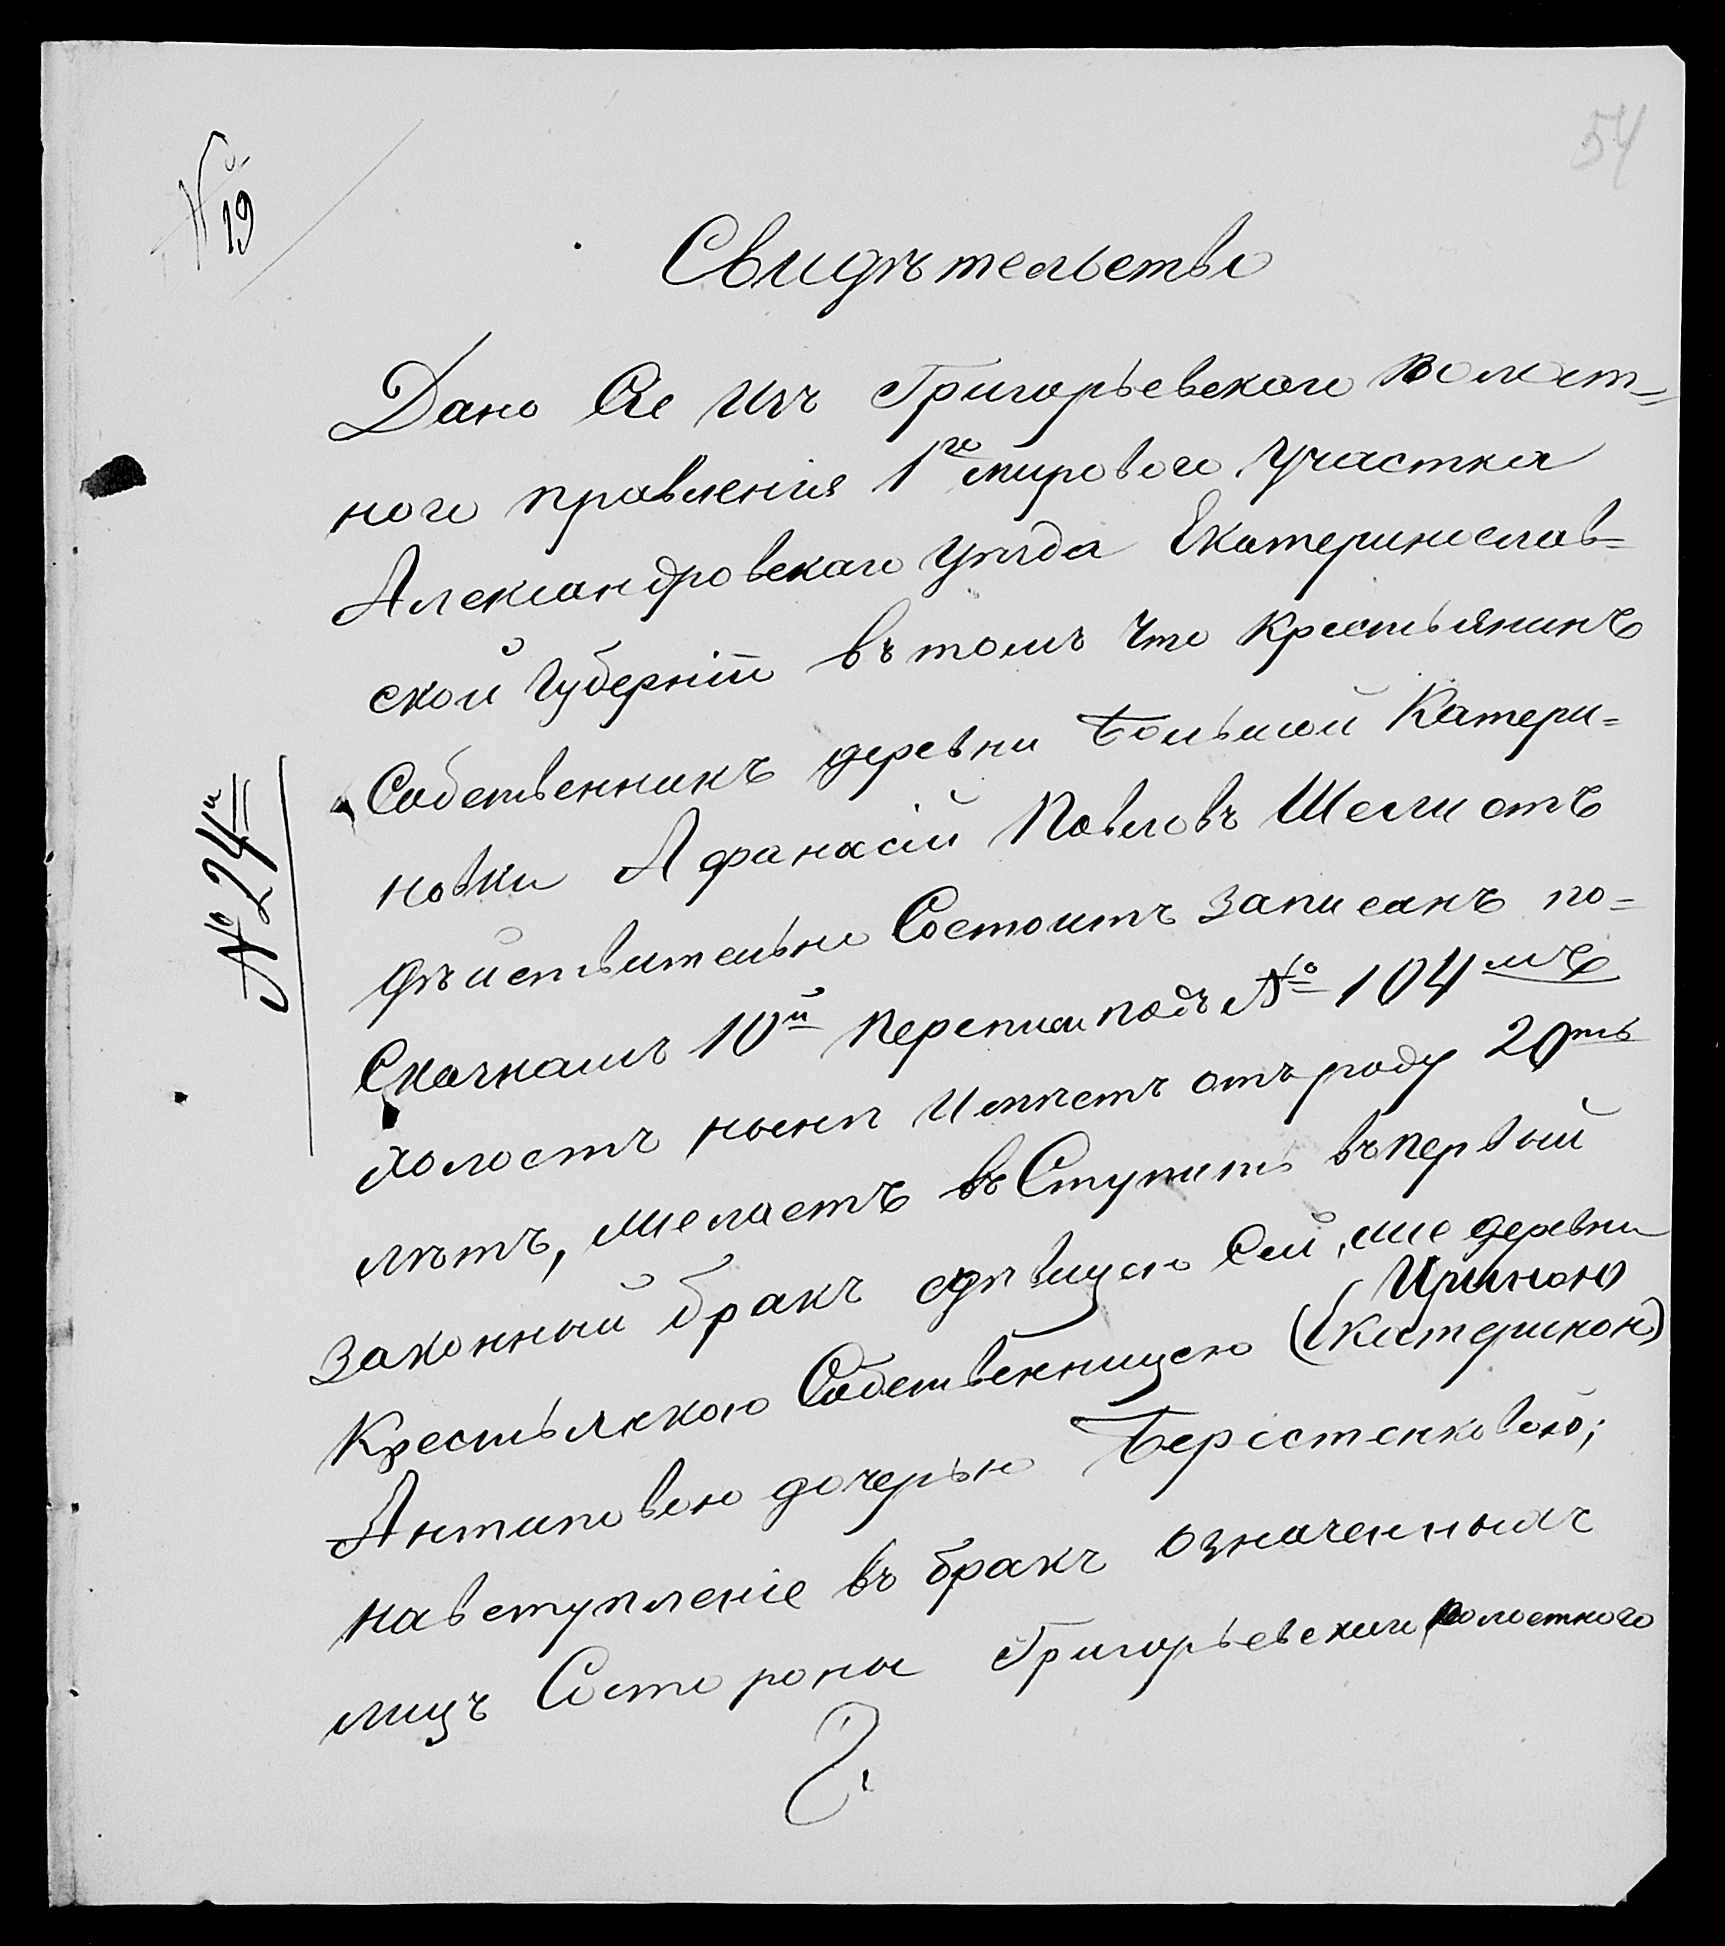 54
№ 19
Свидѣтельство
Дано Сіе изъ Григорьевскаго Волост=
ного правленія 1го мирового участка
Александровскаго уѣзда Екатеринослав=
ской Губерніи въ томъ что Крестьянинъ
Собственникъ деревни Большой Катери=
новки Афанасій Павловъ Шелистъ
дѣйствительно Состоитъ записанъ по=
Сказкамъ 10й переписи подъ № 104мъ
холостъ нынѣ имѣетъ отъ роду 20ть
лѣтъ, желаетъ въ Ступить въ первый
законный бракъ сдѣвицею Сей, же деревни
Ириною
Крестьянкою Собственницею (Екатериною)
Антиповою дочерью Берестенковою;
на вступленіе въ бракъ означенныхъ
лицъ Состороны Григорьевскаго волостного
№ 24й